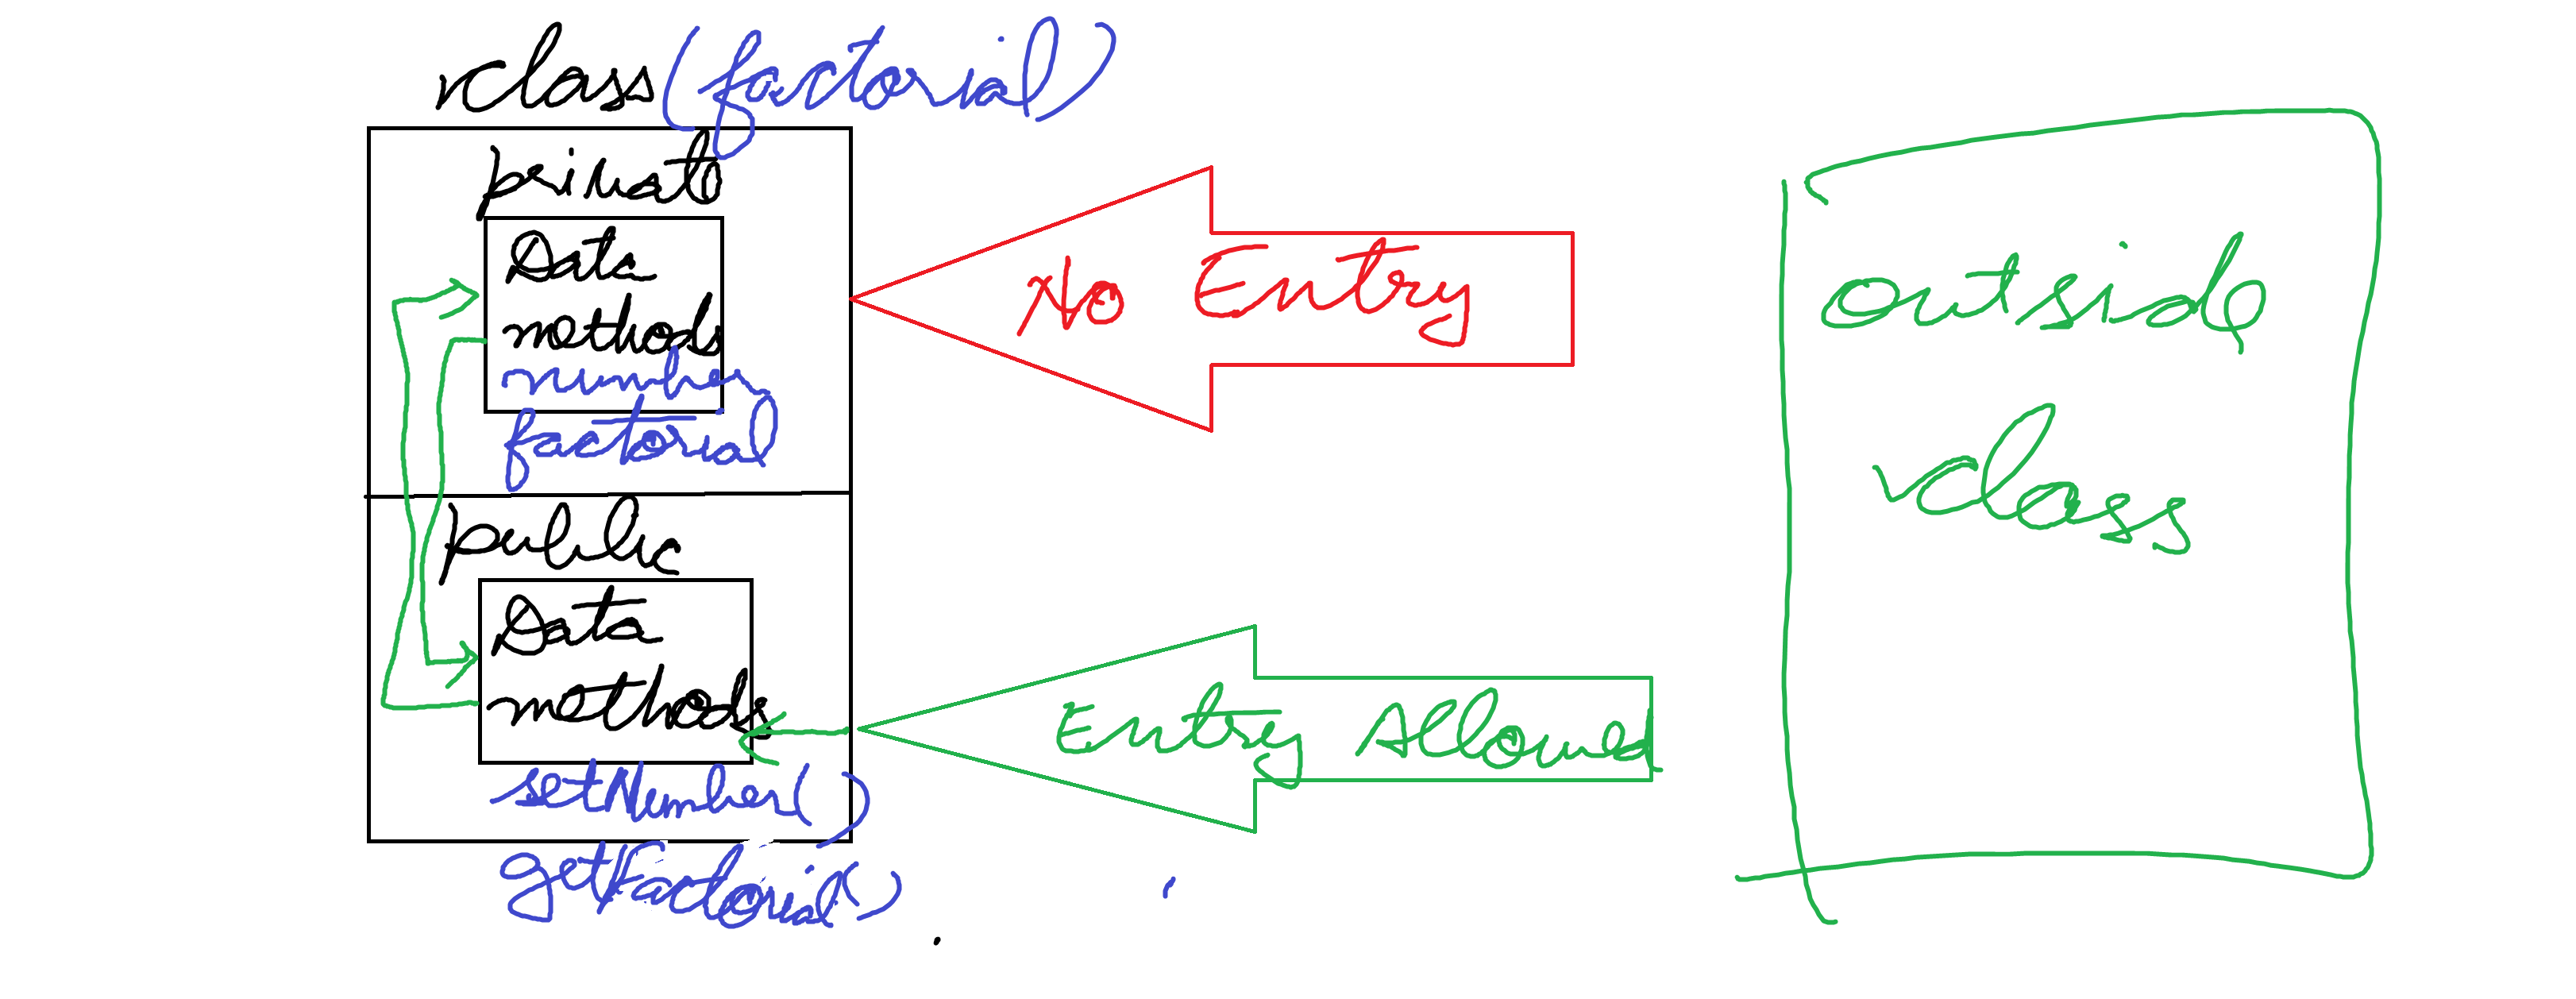 class (factorial)
private
Data
methods
number
factorial
public
Data
methods
setNumber()
getFactorial()
No Entry
Entry Allowed
outside
class